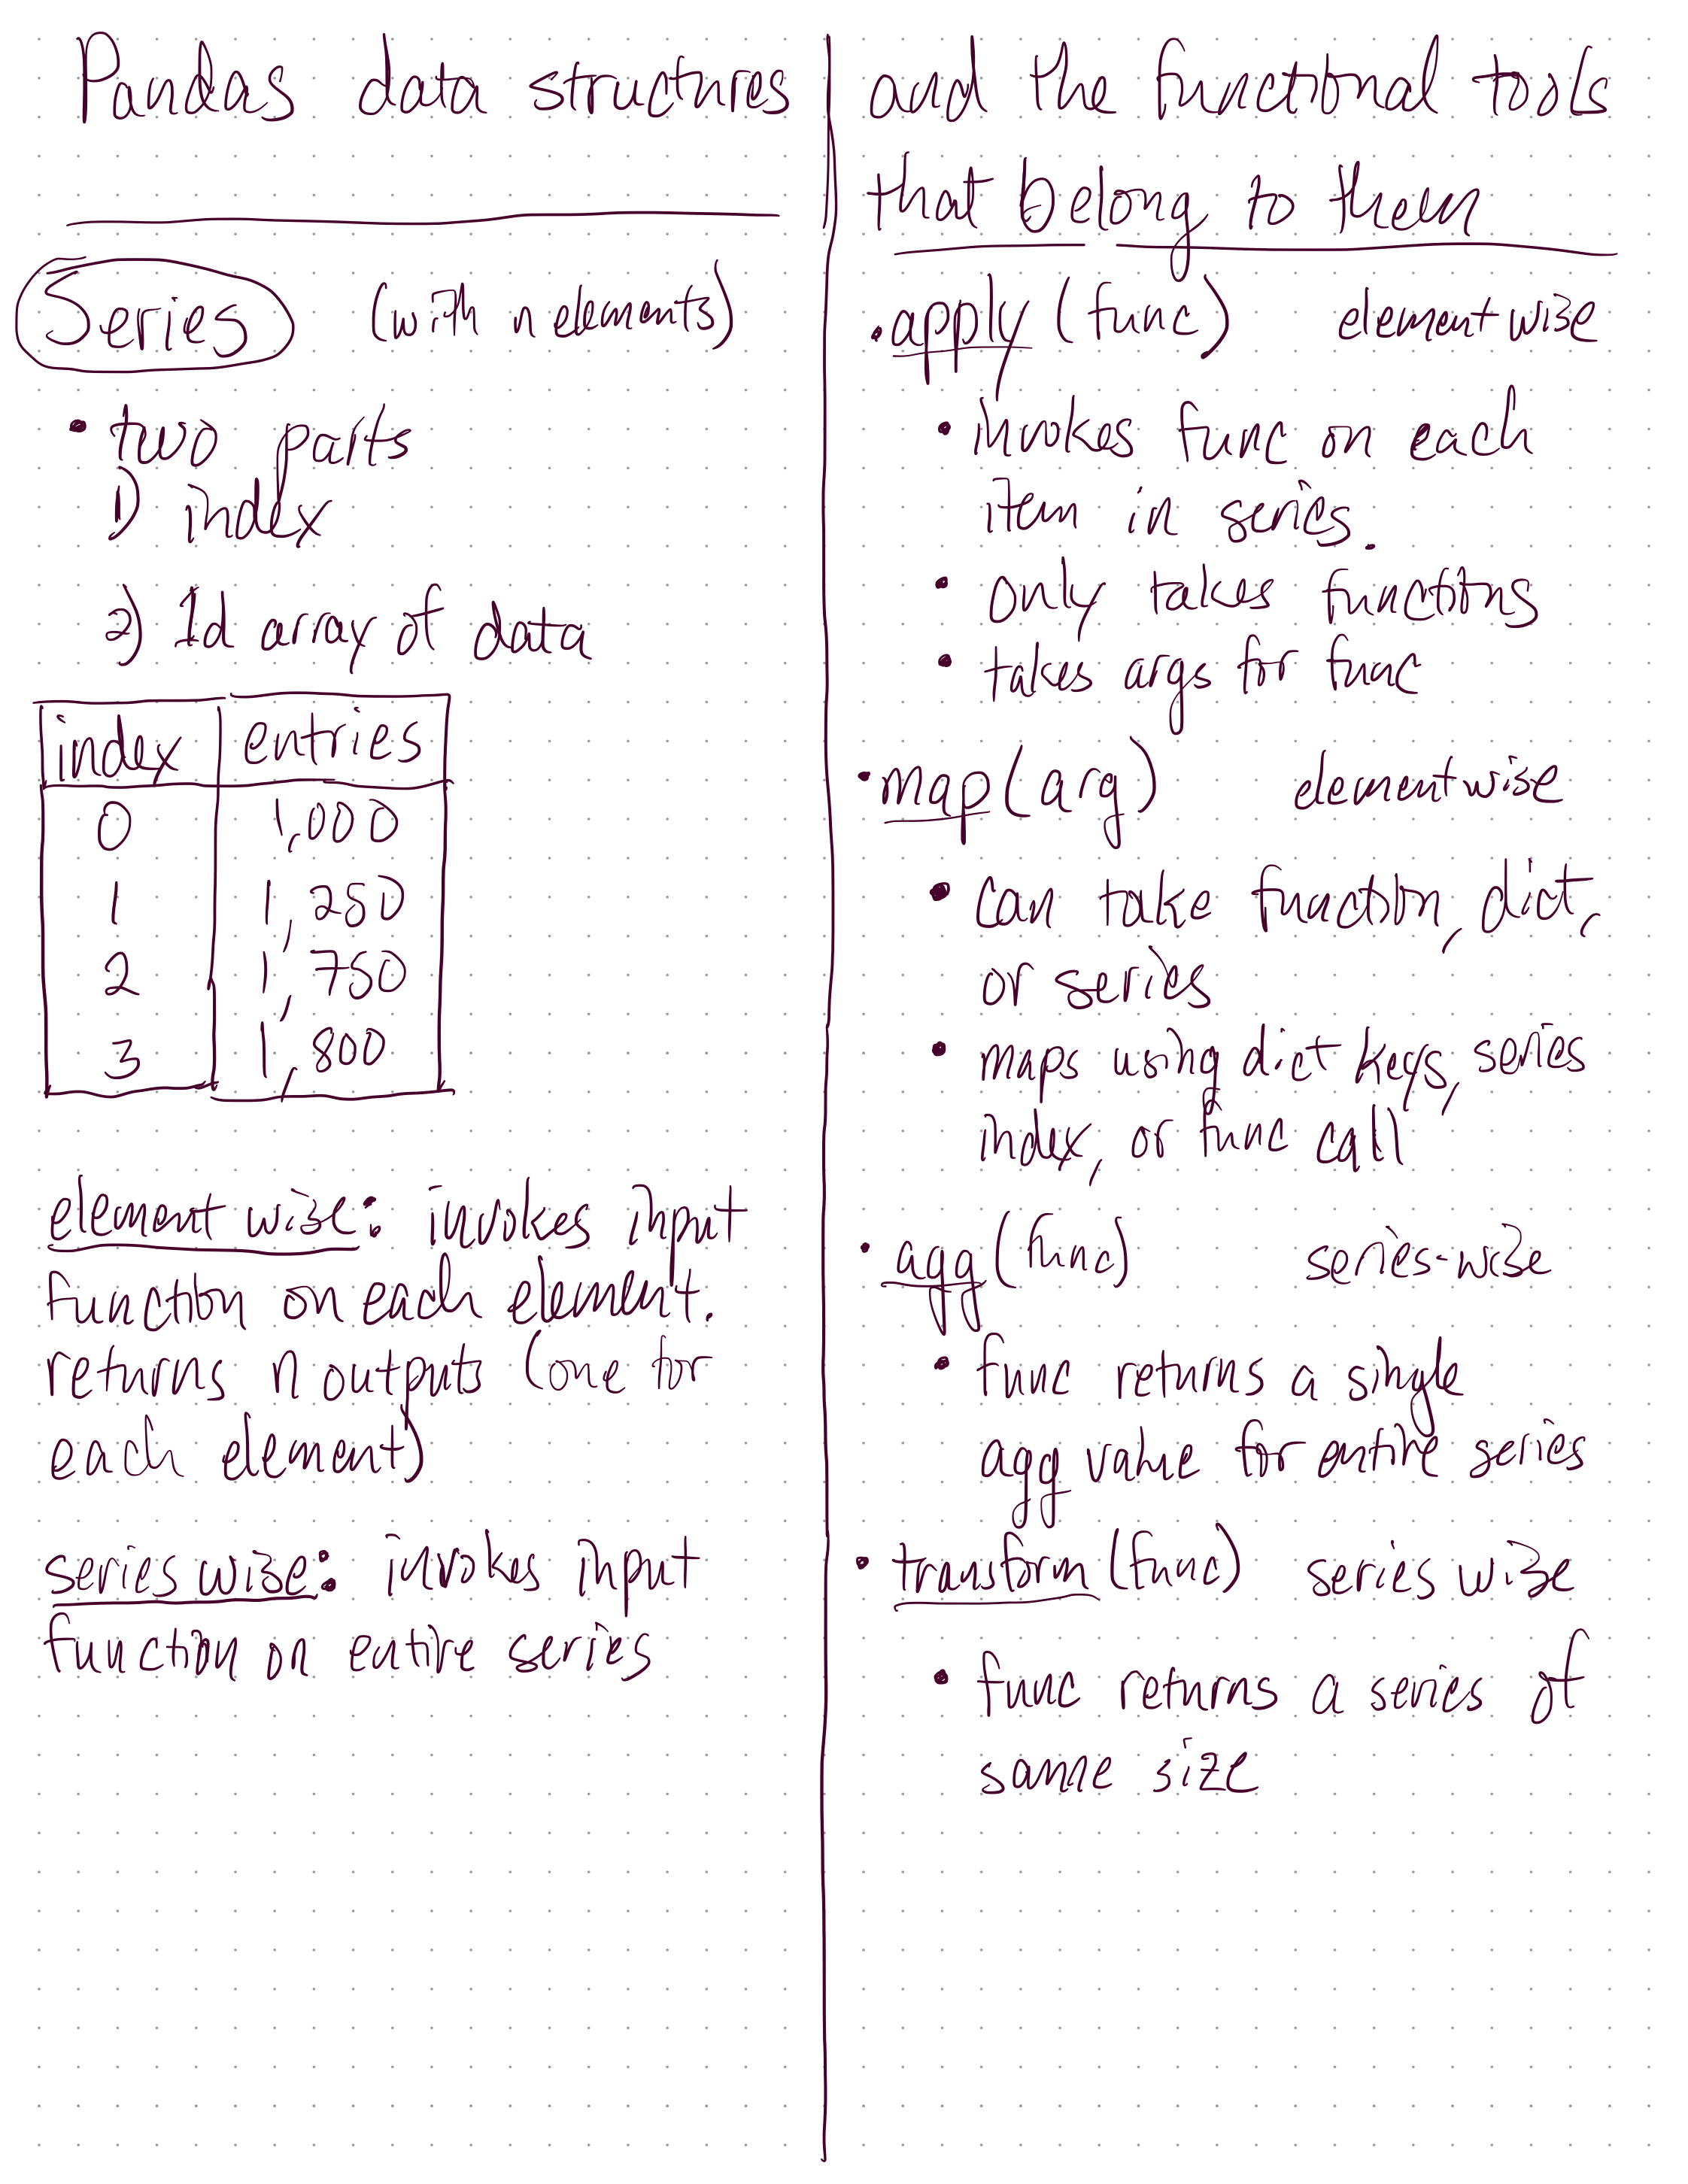 Pandas data structures
Series (with n elements)
• two parts
1) index
2) 1d array of data
index entries
0 1,000
1 1,250
2 1,750
3 1,800
element wise: invokes input
function on each element.
returns n outputs (one for
each element)
series wise: invokes input
function on entire series
and the functional tools
that belong to them
• apply (func) element wise
• invokes func on each
item in series.
• only takes functions
• takes args for func
• map (arg) elementwise
• can take function, dict,
or series
• maps using dict keys, series
index, or func call
• agg (func) series-wise
• func returns a single
agg value for entire series
• transform (func) series wise
• func returns a series of
same size